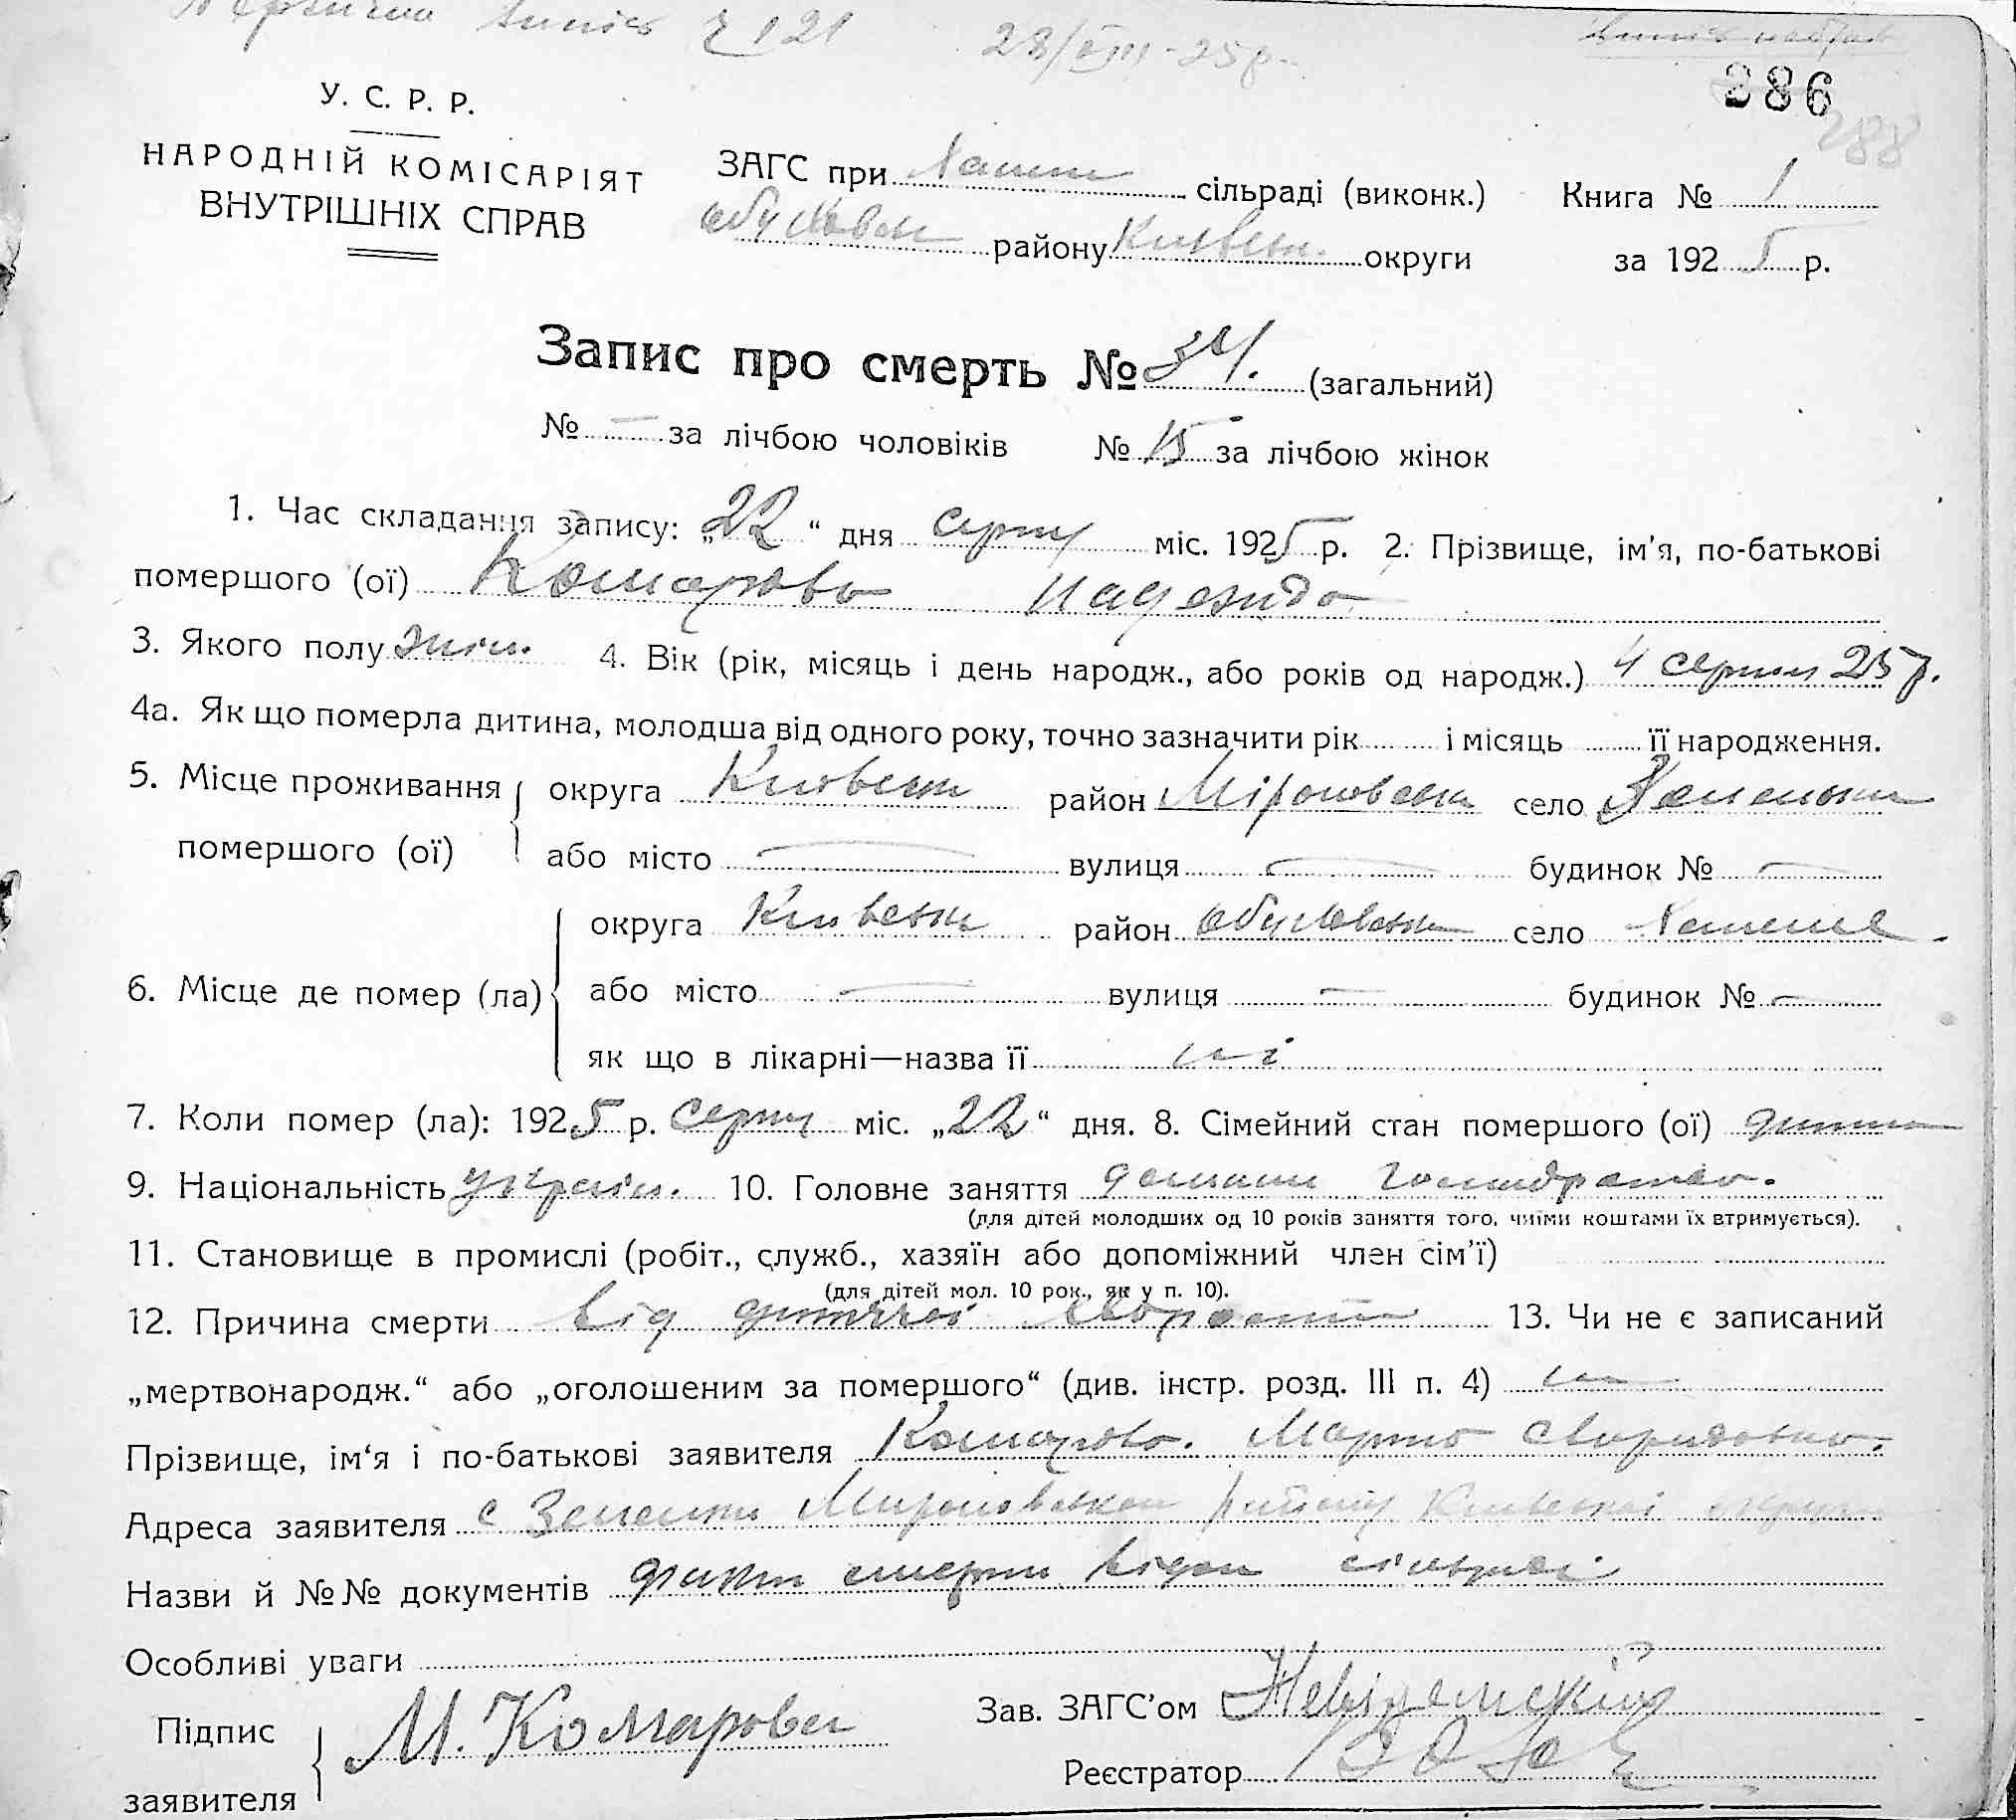 121 28/VIII-25р.
286
288
У. С. Р. Р.
НАРОДНІЙ КОМІСАРІЯТ
ВНУТРІШНІХ СПРАВ
ЗАГС при сільраді (виконк.) Книга № 1
району Київськ. округи за 1925 р.
Запис про смерть № 34. (загальний)
№ — за лічбою чоловіків № 15 за лічбою жінок
1. Час складання запису: „22“ дня серпн міс. 1925 р. 2. Прізвище, ім'я, по-батькові
помершого (ої) Комарова Надежда
3. Якого полу жін. 4. Вік (рік, місяць і день народж., або років од народж.) 4 серпня 25 р.
4а. Як що померла дитина, молодша від одного року, точно зазначити рік і місяць її народження.
5. Місце проживання помершого (ої) округа Київськ район Міроновськ село
або місто — вулиця — будинок № —
6. Місце де помер (ла) округа Київськ район село
або місто — вулиця — будинок № —
як що в лікарні—назва її ні
7. Коли помер (ла): 1925 р. серпн міс. „22“ дня. 8. Сімейний стан помершого (ої) дитина
9. Національність україн. 10. Головне заняття домашн господарство.
(для дітей молодших од 10 років заняття того, чиїми коштами їх втримується).
11. Становище в промислі (робіт., служб., хазяїн або допоміжний член сім'ї)
(для дітей мол. 10 рок., як у п. 10).
12. Причина смерти від дитячої 13. Чи не є записаний
„мертвонародж.“ або „оголошеним за помершого“ (див. інстр. розд. III п. 4) ні
Прізвище, ім'я і по-батькові заявителя Комарова. Марта Свиридовна.
Адреса заявителя с району Київської округи
Назви й №№ документів смерти
Особливі уваги
Підпис заявителя М. Комарова
Зав. ЗАГС'ом
Реєстратор